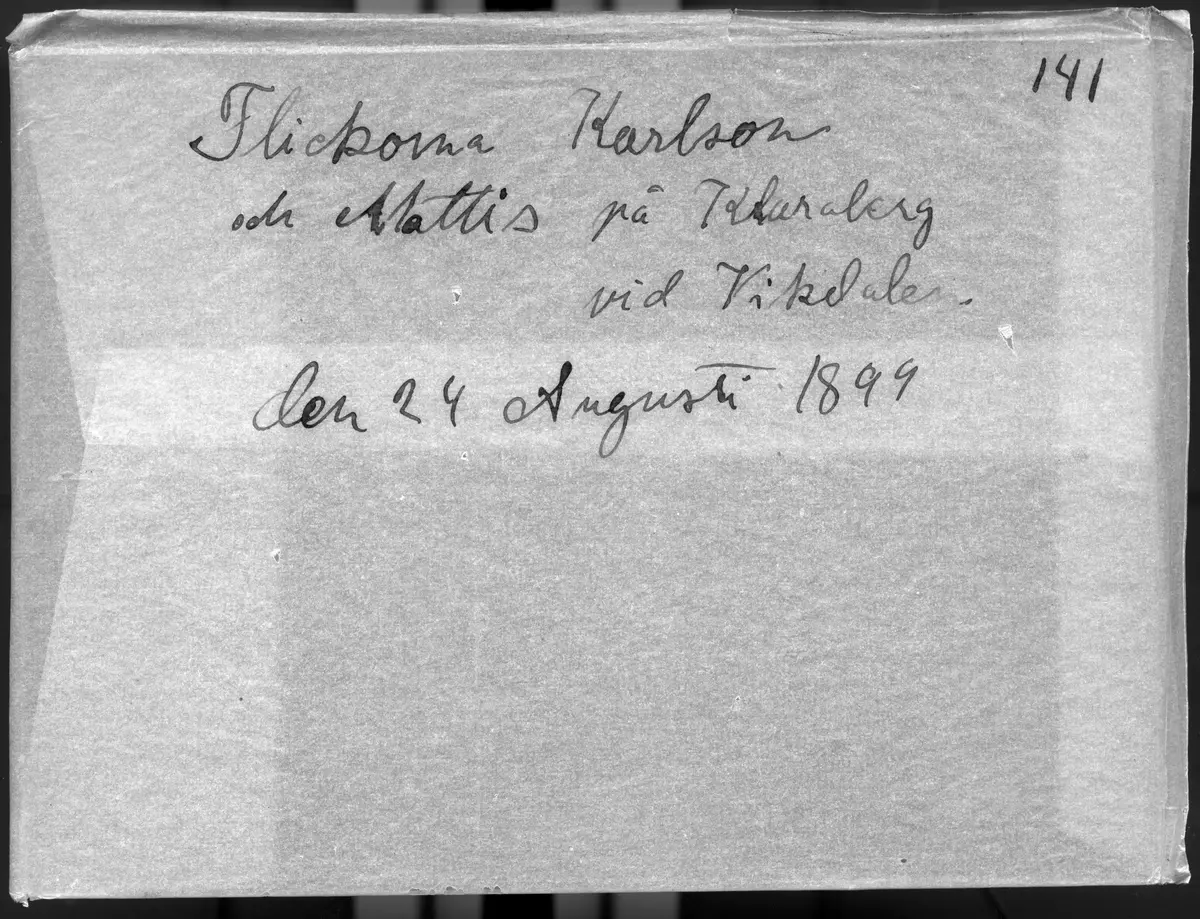 141
Flickorna Karlson
och Mattis på Klaraberg
vid Vikdalen.
den 24 Augusti 1899